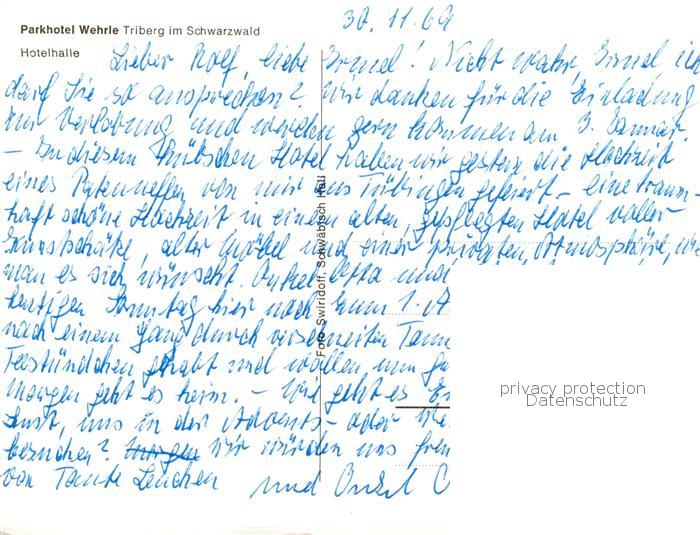 Parkhotel Wehrle Triberg im Schwarzwald
Hotelhalle
30. 11. 69
Lieber Rolf, liebe Gründ! Nicht wahr, ich
darf Sie so ansprechen? Wir danken für die Einladung
zur Verlobung und werden gern kommen am 3. Januar.
– In diesem hübschen Hotel haben wir gestern die Hochzeit
eines Patenneffen von mir aus Tübingen gefeiert – eine traum-
haft schöne Hochzeit in einem alten, gepflegten Hotel voller
Kunstschätze, alter Möbel und einer privaten Atmosphäre, wie
man es sich wünscht. Onkel Otto und
heutigen Sonntag hier noch zum 1. A
nach einem Gang durch verschneiten Tann
Teestündchen gehabt und wollen nun
morgen geht es heim. – Wie geht es
Lust, uns in der Advents- oder
besuchen? Morgen Wir würden uns freu
von Tante Lenchen und Onkel O
Foto Swiridoff, Schwäbisch Hall
privacy protection
Datenschutz